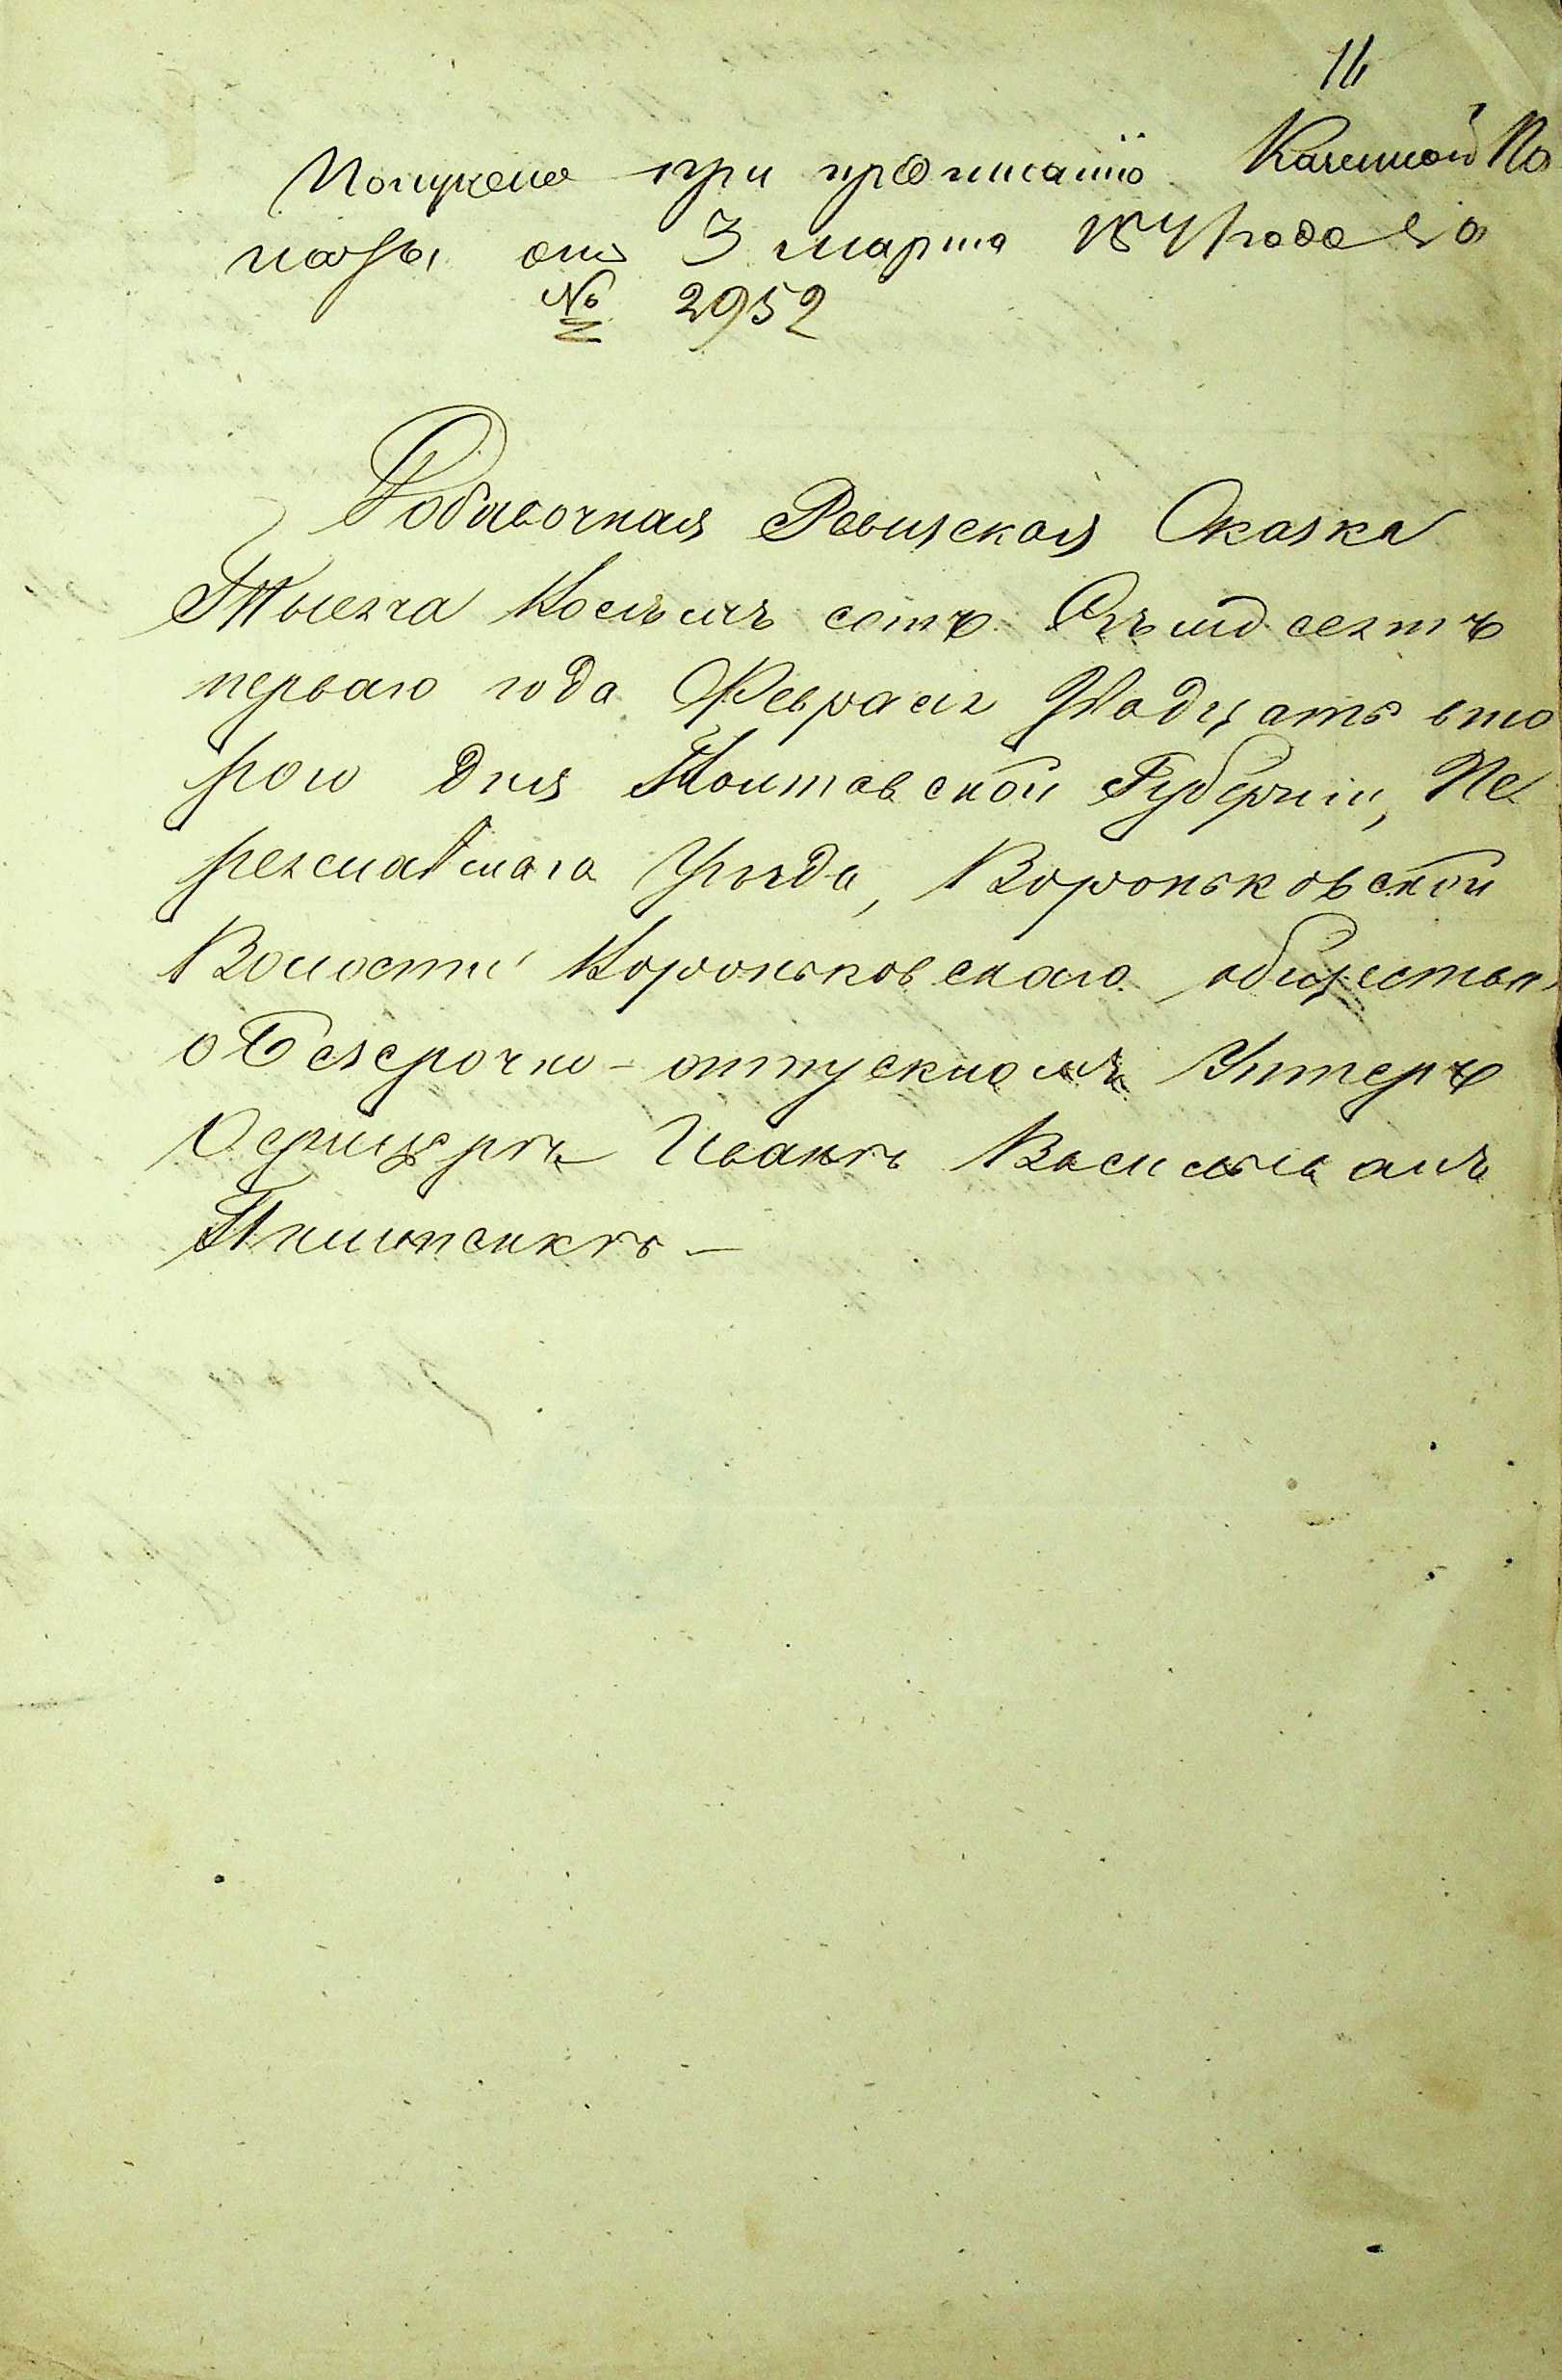 16
Получена при предписанiю Казенной Па
латы от 3 марта 1871 года за
№ 2952
Добавочная Ревизская Сказка
Тысяча восемь сотъ семьдесятъ
перваго года Февраля Двадцать вто
рого дня Полтавской Губернiи, Пе
реяславскаго Уѣзда, Вороньковской
Волости Вороньковскаго общества
о Безсрочно-отпускномъ Унтеръ
Офицерѣ Иванѣ Васильевомъ